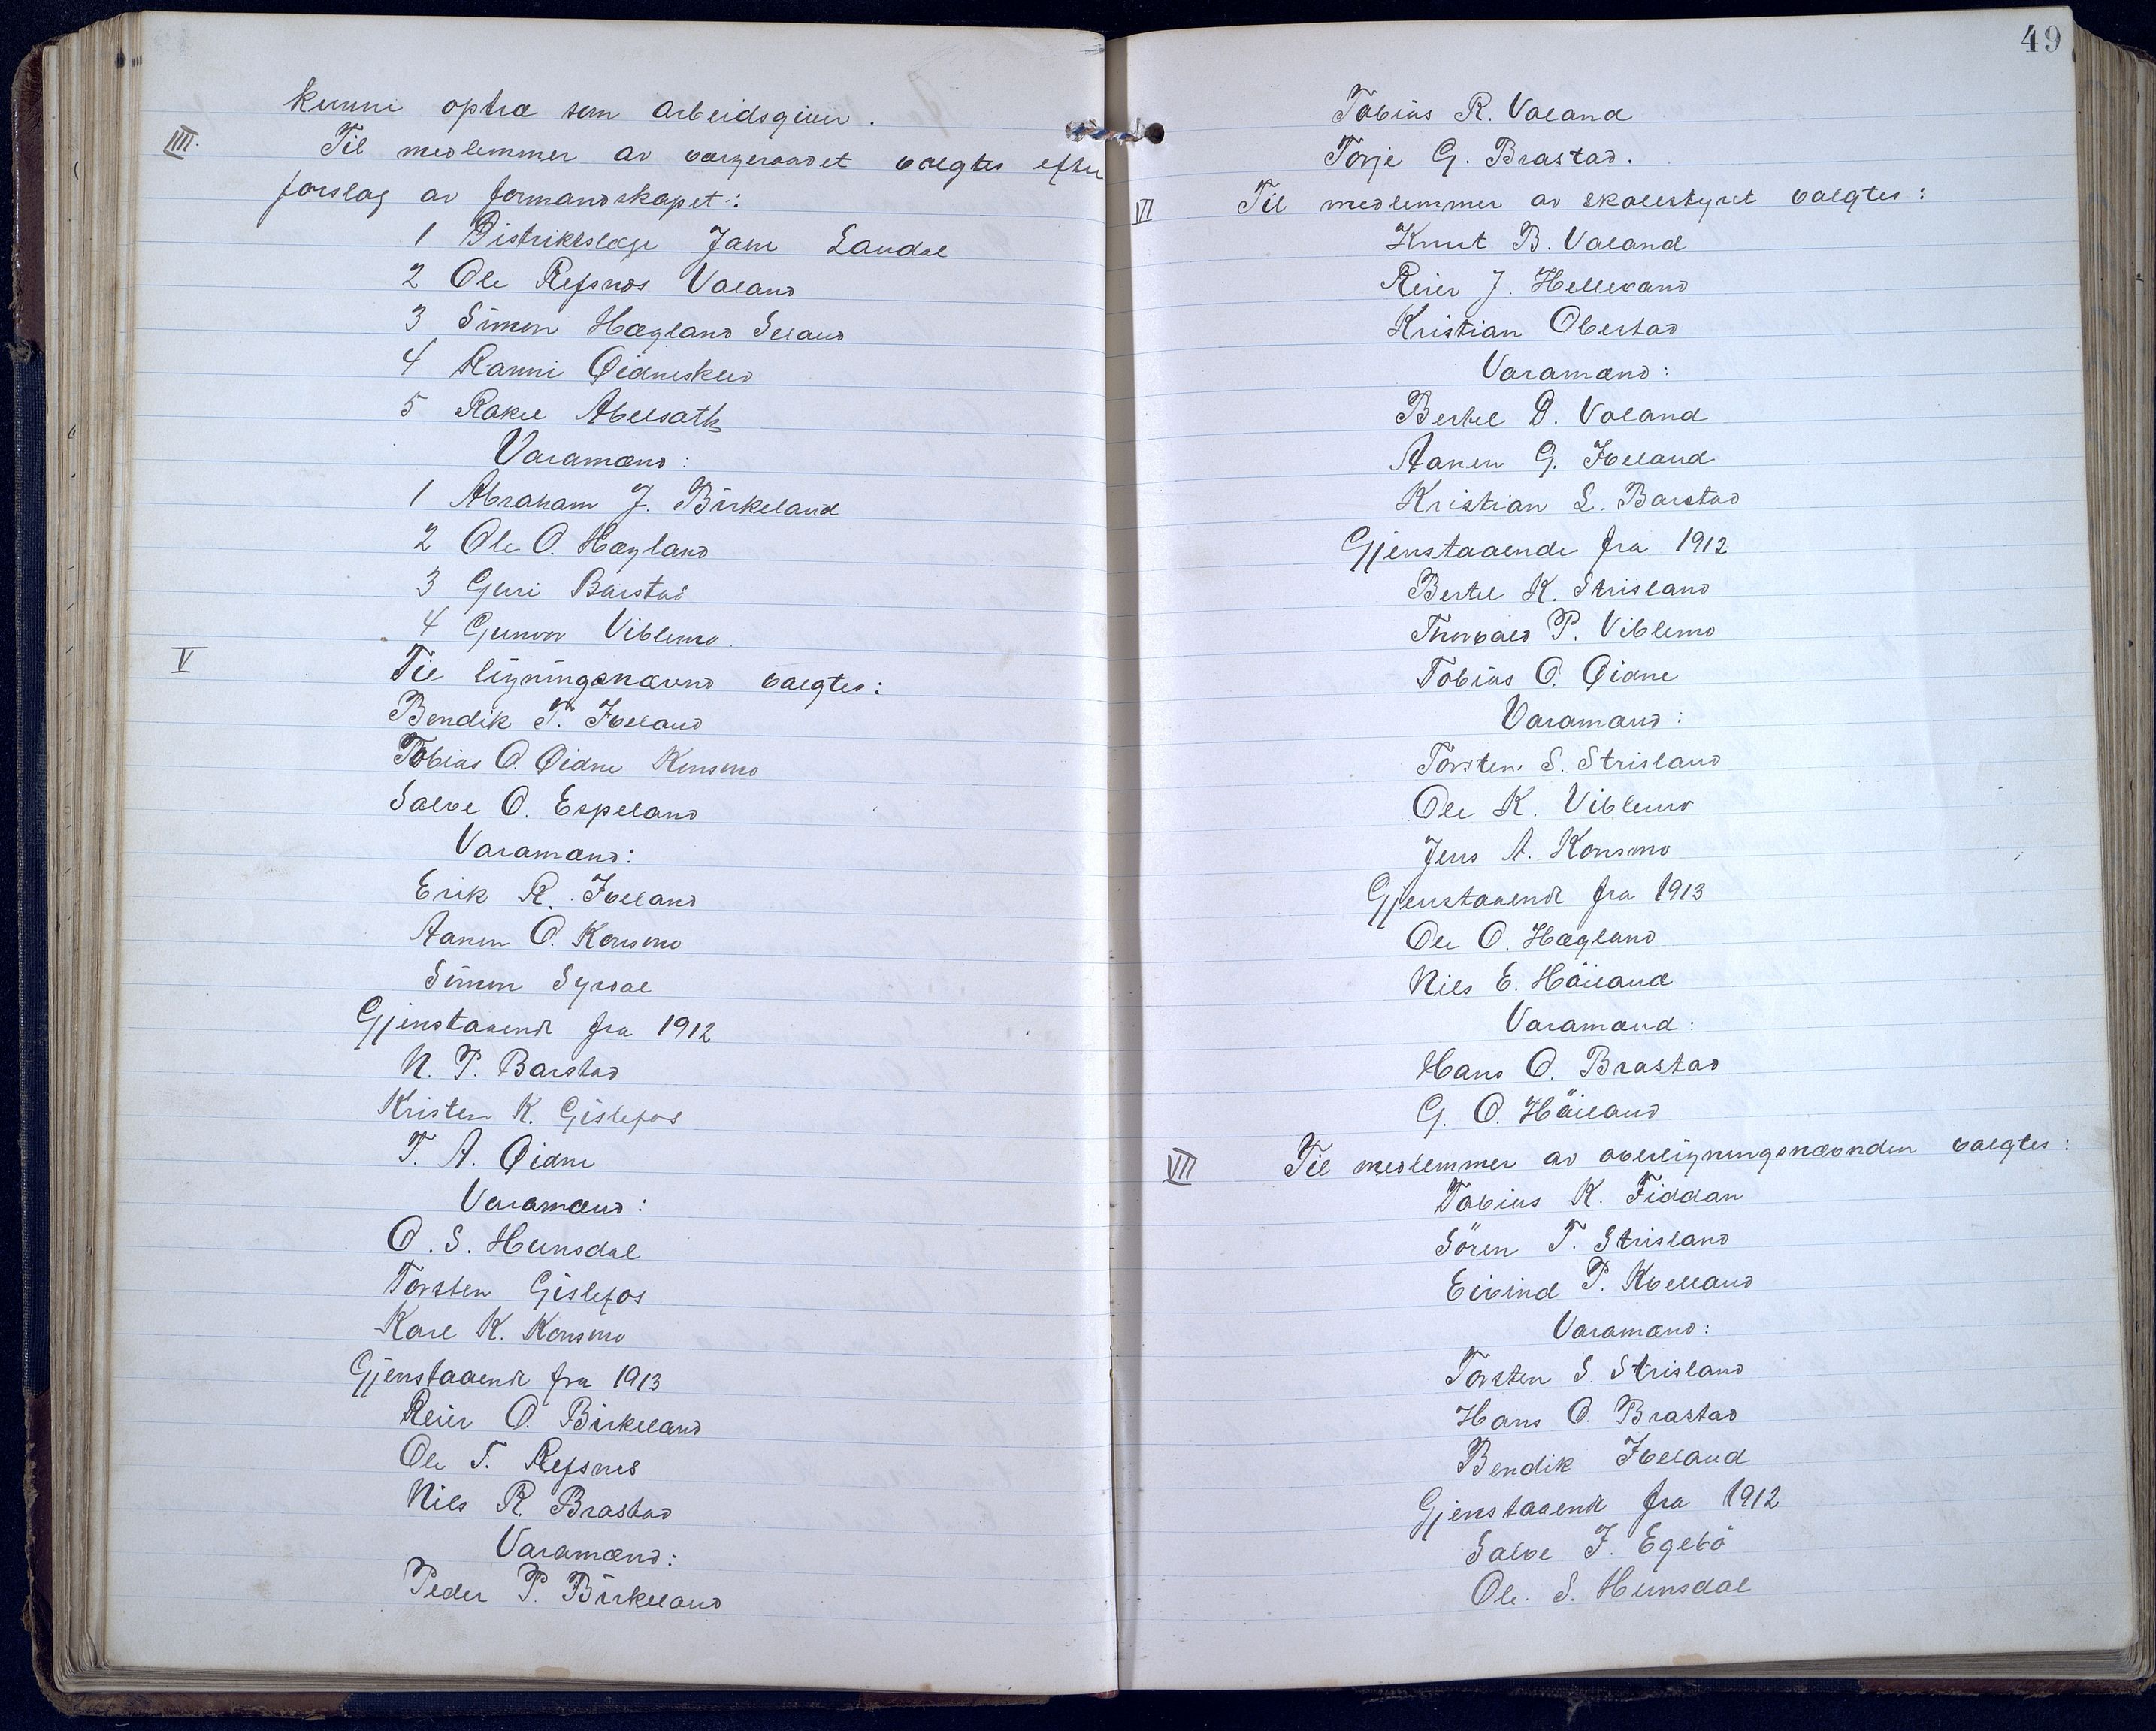 kunne optræ som arbeidsgiver.
IIII. Til medlemmer av værgeraadet valgtes efter
forslag av formandskapet:
1 Distriktslæge Jani Laudal
2 Ole Refsnes Valand
3 Simon Hægland Seland
4 Ranni Øidneskled
5 Rakel Abelsath
Varamænd:
1 Abraham J. Birkeland
2 Ole O. Hægland
3 Guri Barstad
4 Gunvor Viblemo.
V Til ligningsnævnd valgtes:
Bendik T. Iveland
Tobias O. Øidne Konsmo
Salve O. Espeland
Varamænd:
Erik R. Iveland
Aanen O. Konsmo
Simon Syrdal
Gjenstaaende fra 1912
N. P. Barstad
Kristen K. Gislefos
T. A. Øidne
Varamænd:
O. S. Hunsdal
Torsten Gislefos
Karl K. Konsmo
Gjenstaaende fra 1913
Reier O. Birkeland
Ole T. Refsnes
Nils R. Brastad
Varamænd:
Peder P. Birkeland
49
Tobias R. Valand
Torje G. Brastad.
VI Til medlemmer av skolestyret valgtes:
Knut B. Valand
Reier J. Hellevand
Kristian Obestad
Varamænd:
Bertel D. Valand
Aanen G. Iveland
Kristian L. Barstad
Gjenstaaende fra 1912
Bertel K. Strisland
Thorvald P. Viblemo
Tobias O. Øidne
Varamænd:
Torsten S. Strisland
Ole K. Viblemo
Jens A. Konsmo
Gjenstaaende fra 1913
Ole O. Hægland
Nils E. Häiland
Varamænd:
Hans O. Brastad
G. O. Häiland
VII Til medlemmer av overligningsnævnden valgtes:
Tobias K. Fiddan
Sören T. Strisland
Eivind P. Kvelland
Varamænd:
Torsten S Strisland
Hans O. Brastad
Bendik Iveland
Gjenstaaende fra 1912
Salve J. Egebö
Ole. S. Hunsdal